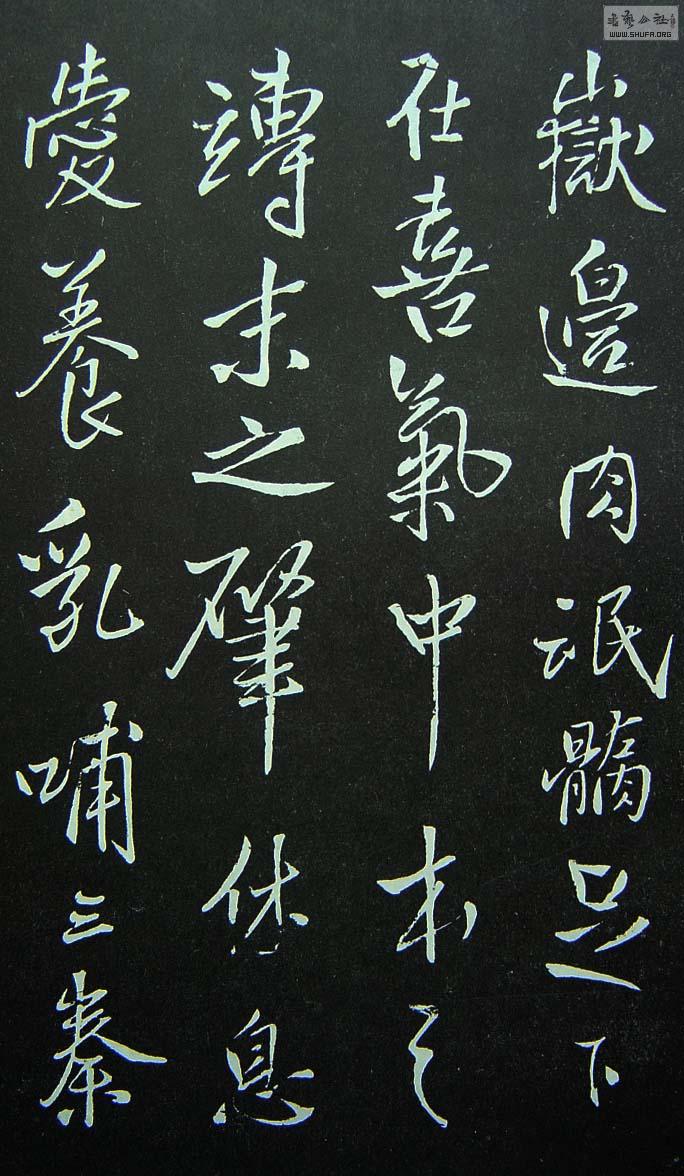 嶽邊肉泯足下
在喜氣中本之
竱末之肇休息
愛養乳哺三秦
書藝公社
WWW.SHUFA.ORG